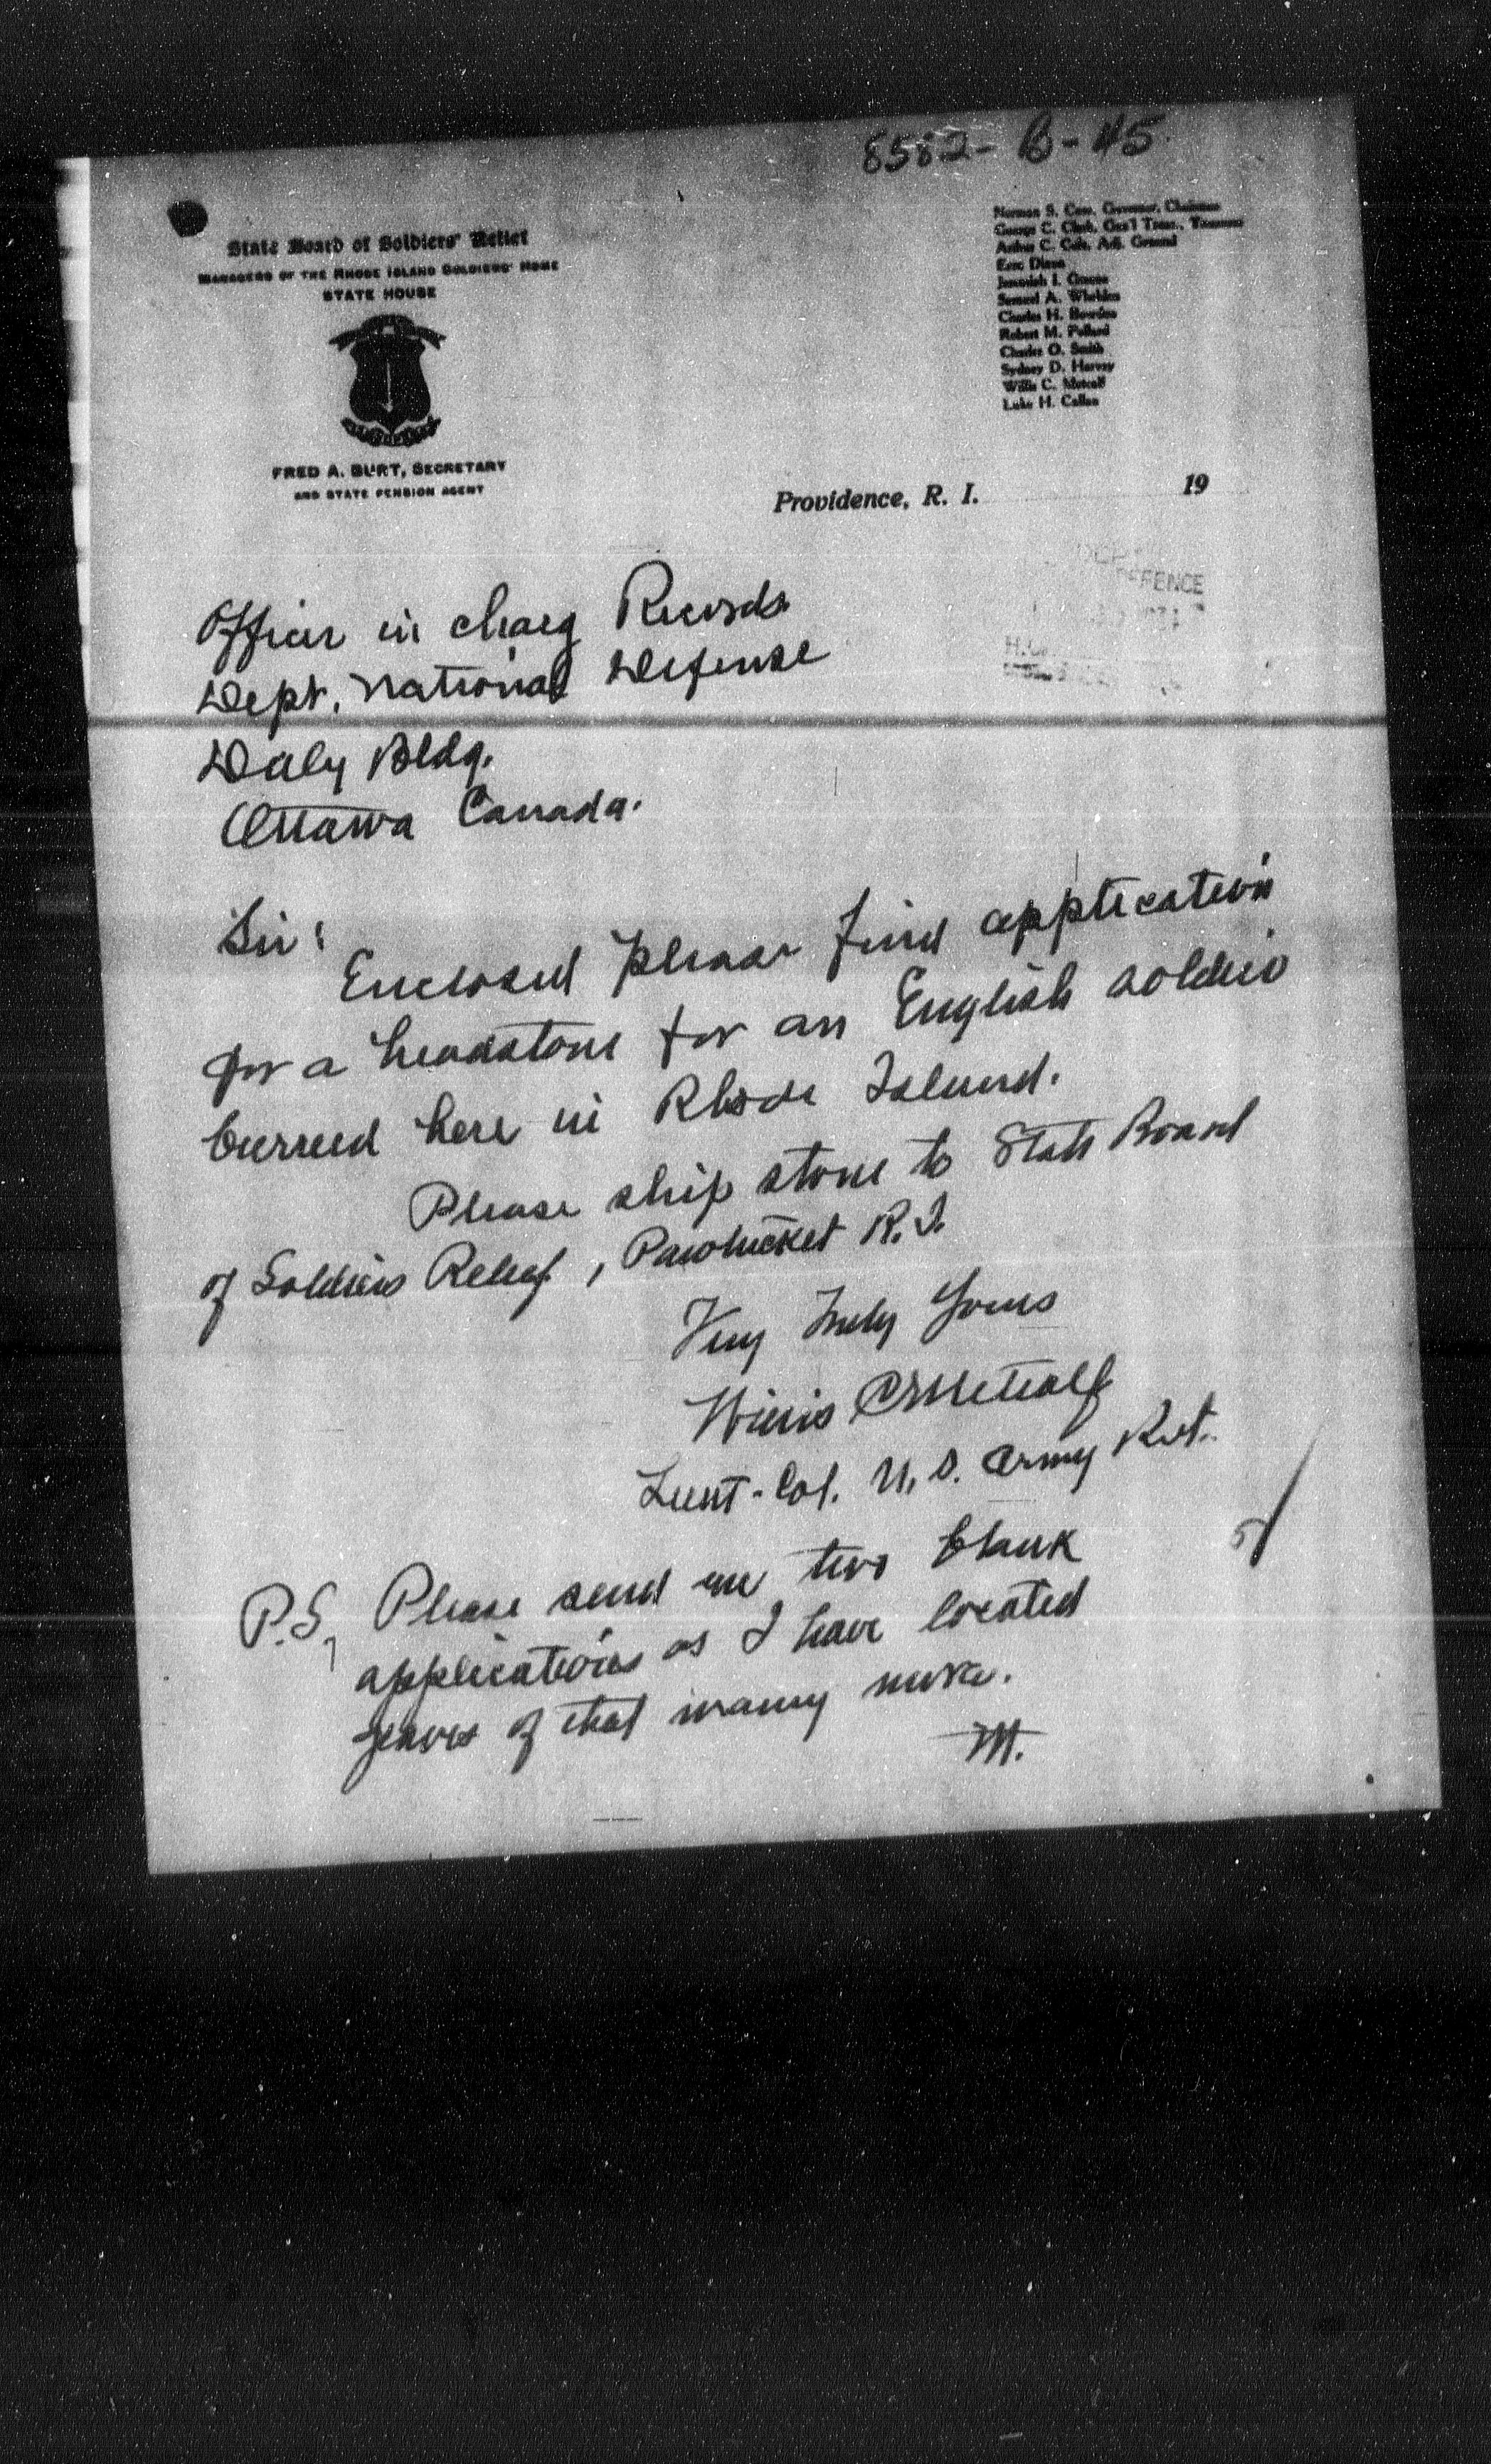 8582-B-45
State Board of Soldiers' Relief
MANAGERS OF THE RHODE ISLAND SOLDIERS' HOME
STATE HOUSE
FRED A. BURT, SECRETARY
AND STATE PENSION AGENT
Norman S. Case, Governor, Chairman
George C. Clark, Gen'l Treas., Treasurer
Arthur C. Cole, Adj. General
Jeremiah I. Greene
Samuel A. Whelden
Charles H. Bowden
Robert M. Pollard
Charles O. Smith
Sydney D. Harvey
Willis C. Metcalf
Luke H. Callan
Providence, R. I. 19
Officer in charg Records
Dept. National Defense
Daly Bldg.
Ottawa Canada.
Sir:
Enclosed please find application
for a headstone for an English soldier
burried here in Rhode Island.
Please ship stone to State Board
of Soldiers Relief, Pawtucket R.I.
Very Truly Yours
Willis C Metcalf
Lieut-Col. U.S. Army Ret.
P.S. Please send me two blank
applications as I have located
graves of that many more.
M.